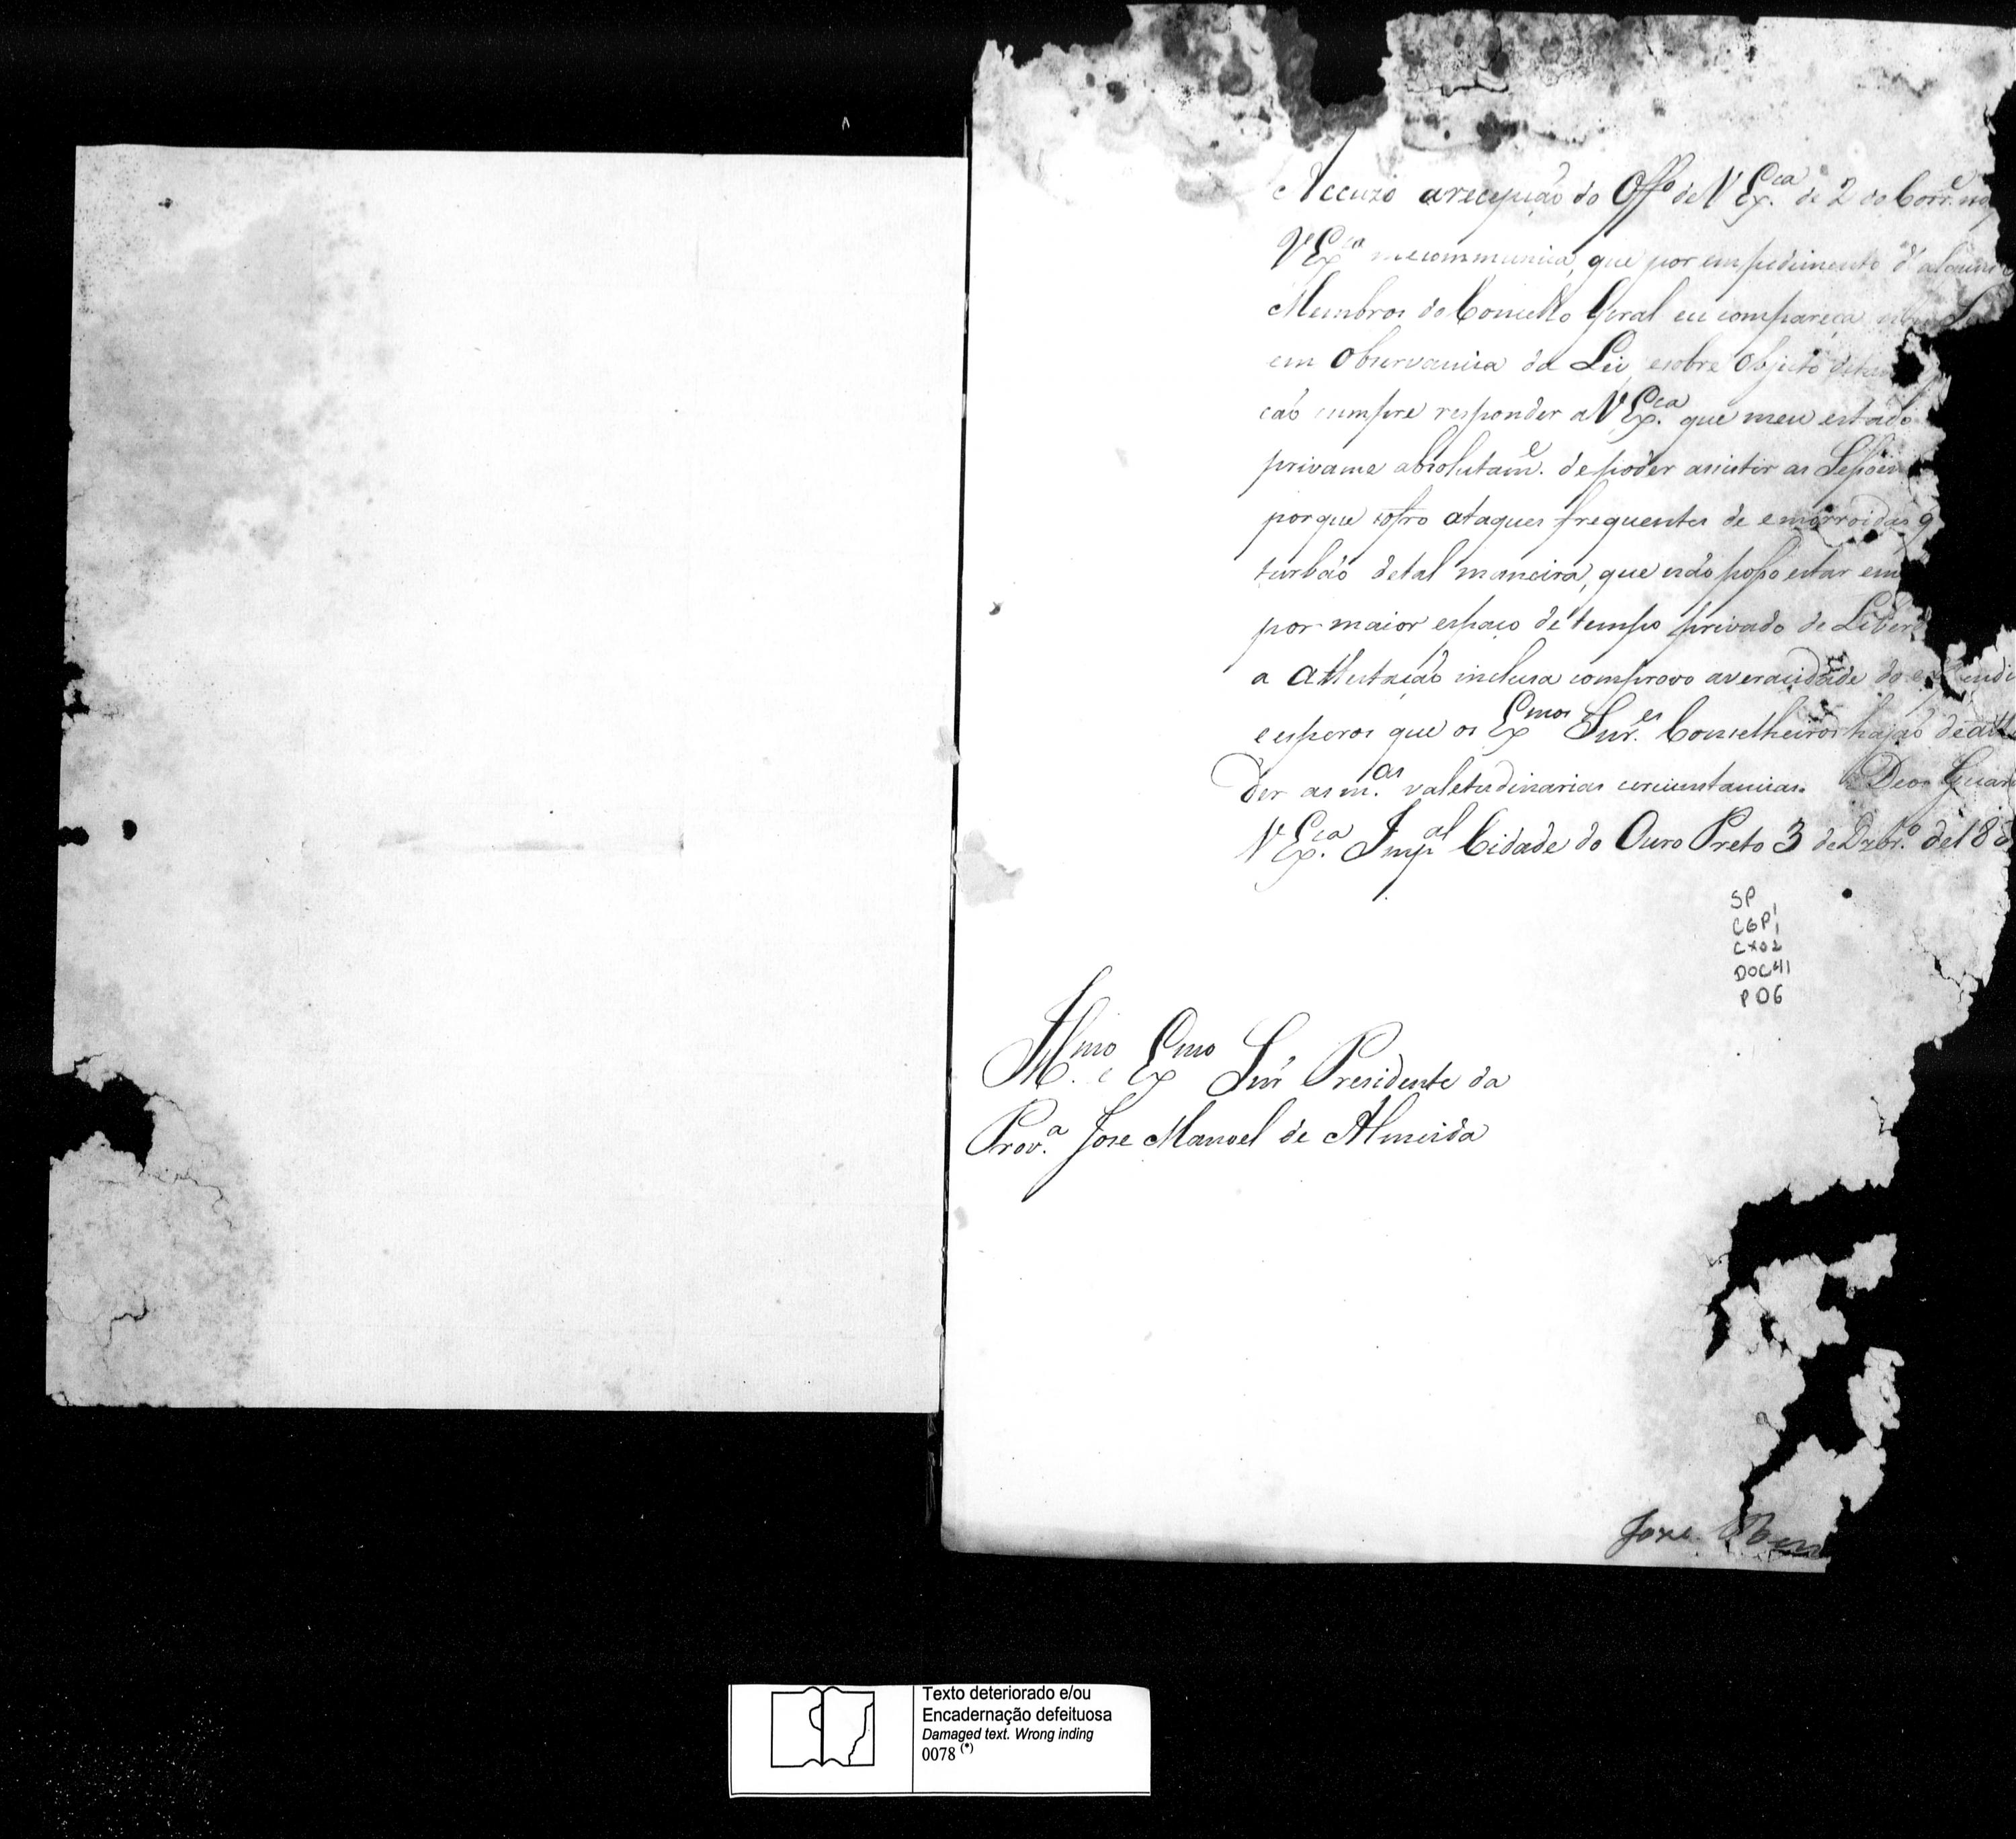 Accuzo a recepção do Off.º de V Ex.ca de 2 do Corr.e
V Ex.ca me communica, que por empedimento d'alguns
Membros do Concelho Geral eu compareça
em Observancia da Lei, e sobre Objecto
cão cumpre responder a V Ex.ca que meu estado
privame absolutam.e de poder assistir as Sessões
porque sofro ataques frequentes de emorroidas q
turbão de tal maneira, que não posso estar em
por maior espaço de tempo privado de Liberd
a attestação inclusa comprovo a veracidade do
e espero que os Ex.mos Snr.es Conselheiros hajão de atte
der as m.as valetudinarias circunstancias. Deos Guar
V Ex.ca Imp.al Cidade do Ouro Preto 3 de Dzbr.º de 18
SP
CGP1
CX02
DOC41
P06
Ill.mo e Ex.mo Snr Presidente da
Prov.a Jose Manoel de Almeida
Jose
Texto deteriorado e/ou
Encadernação defeituosa
Damaged text. Wrong inding
0078 (*)